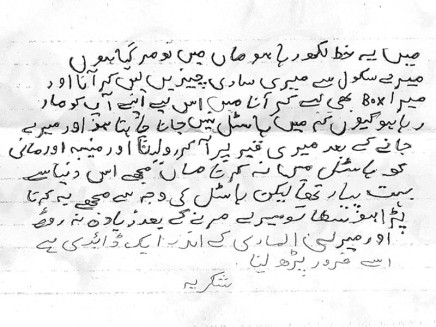 میں یہ خط لکھ رہا ہو ماں میں تو مر گیا ہوں
میرے سکول سے میری ساری چیزیں لیں کر آنا اور
میرا Box بھی لیے کر آنا میں اس لیے اپنے آپ کو مار
رہا ہو کیوں کہ میں ہاسٹل نہیں جانا چاہتا ہو اور میرے
جانے کے بعد میری قبر پر آ کر رو لینا اور منیبہ اور مانی
کو ہاسٹل میں نہ کرنا ماں مجھے اس دنیا سے
بہت پیار تھا لیکن ہاسٹل کی وجہ سے مجھے یہ کرنا
پڑا میرے مرنے کے بعد زیادہ نہ رونا
اور میری الماری کے اندر ایک ڈائری ہے
اسے ضرور پڑھ لینا
شکریہ